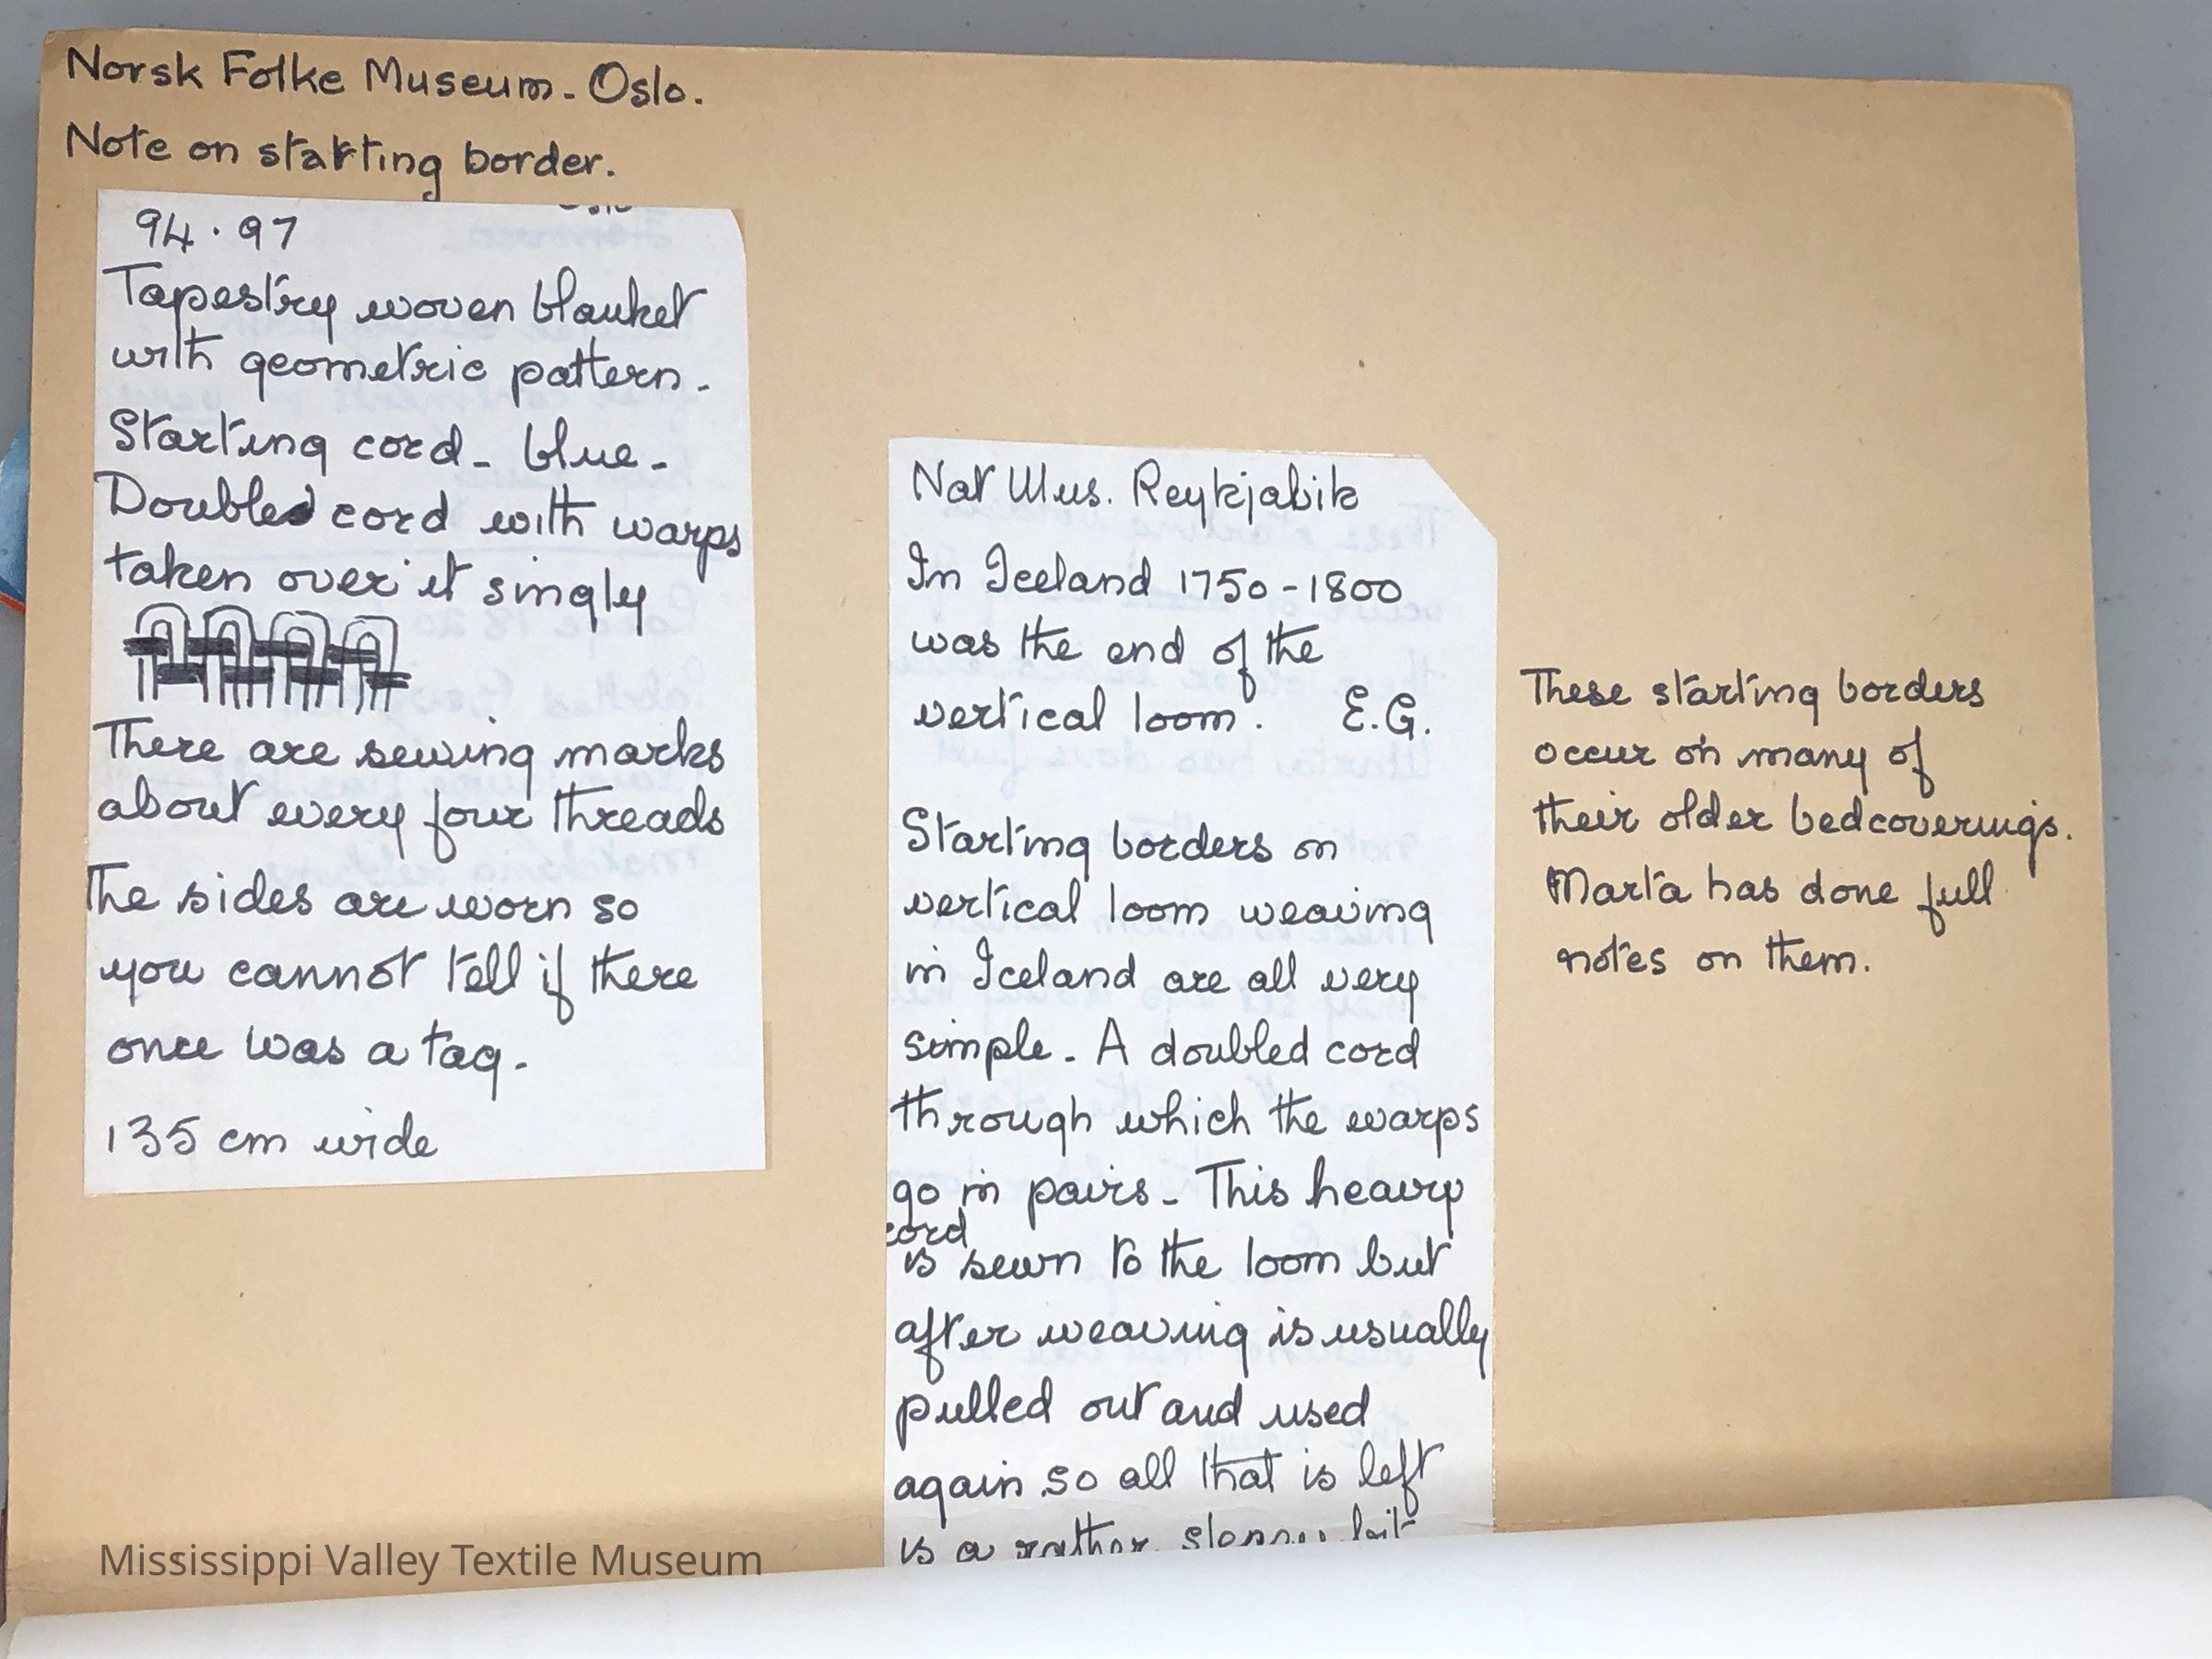 Norsk Folke Museum - Oslo.
Note on starting border.
94.97
Tapestry woven blanket
with geometric pattern -
Starting cord - blue -
Doubled cord with warps
taken over it singly
There are sewing marks
about every four threads
The sides are worn so
you cannot tell if there
once was a tag -
135 cm wide
Nat Mus. Reykjabik
In Iceland 1750 - 1800
was the end of the
vertical loom. E.G.
Starting borders on
vertical loom weaving
in Iceland are all very
simple - A doubled cord
through which the warps
go in pairs - This heavy
cord
is sewn to the loom but
after weaving is usually
pulled out and used
again so all that is left
is a rather bit
These starting borders
occur on many of
their older bedcoverings.
Marta has done full
notes on them.
Mississippi Valley Textile Museum